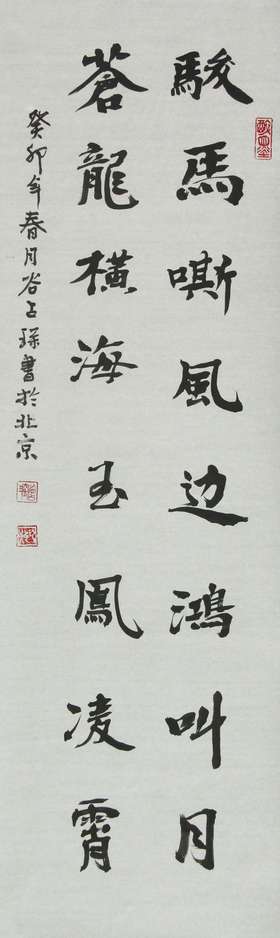 駿馬嘶風边鴻叫月
蒼龍横海玉鳳凌霄
癸卯年春月谷書於北京